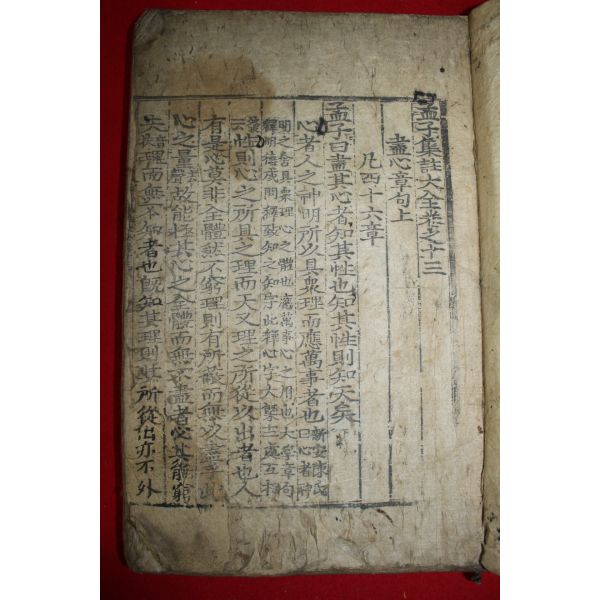 孟子集註大全卷之十三
盡心章句上
凡四十六章
孟子曰盡其心者知其性也知其性則知天矣
心者人之神明所以具衆理而應萬事者也新安陳氏曰心者神
明之舍具衆理心之體也應萬事心之用也大學章句
釋明德或問釋致知之知字此釋心字大槩三處互相
性則心之所具之理而天又理之所從以出者也人
有是心莫非全體然不窮理則有所蔽而無以盡乎此
心之量故能極其心之全體而無不盡者必其能窮
夫音扶理而無不知者也旣知其理則其所從出亦不外